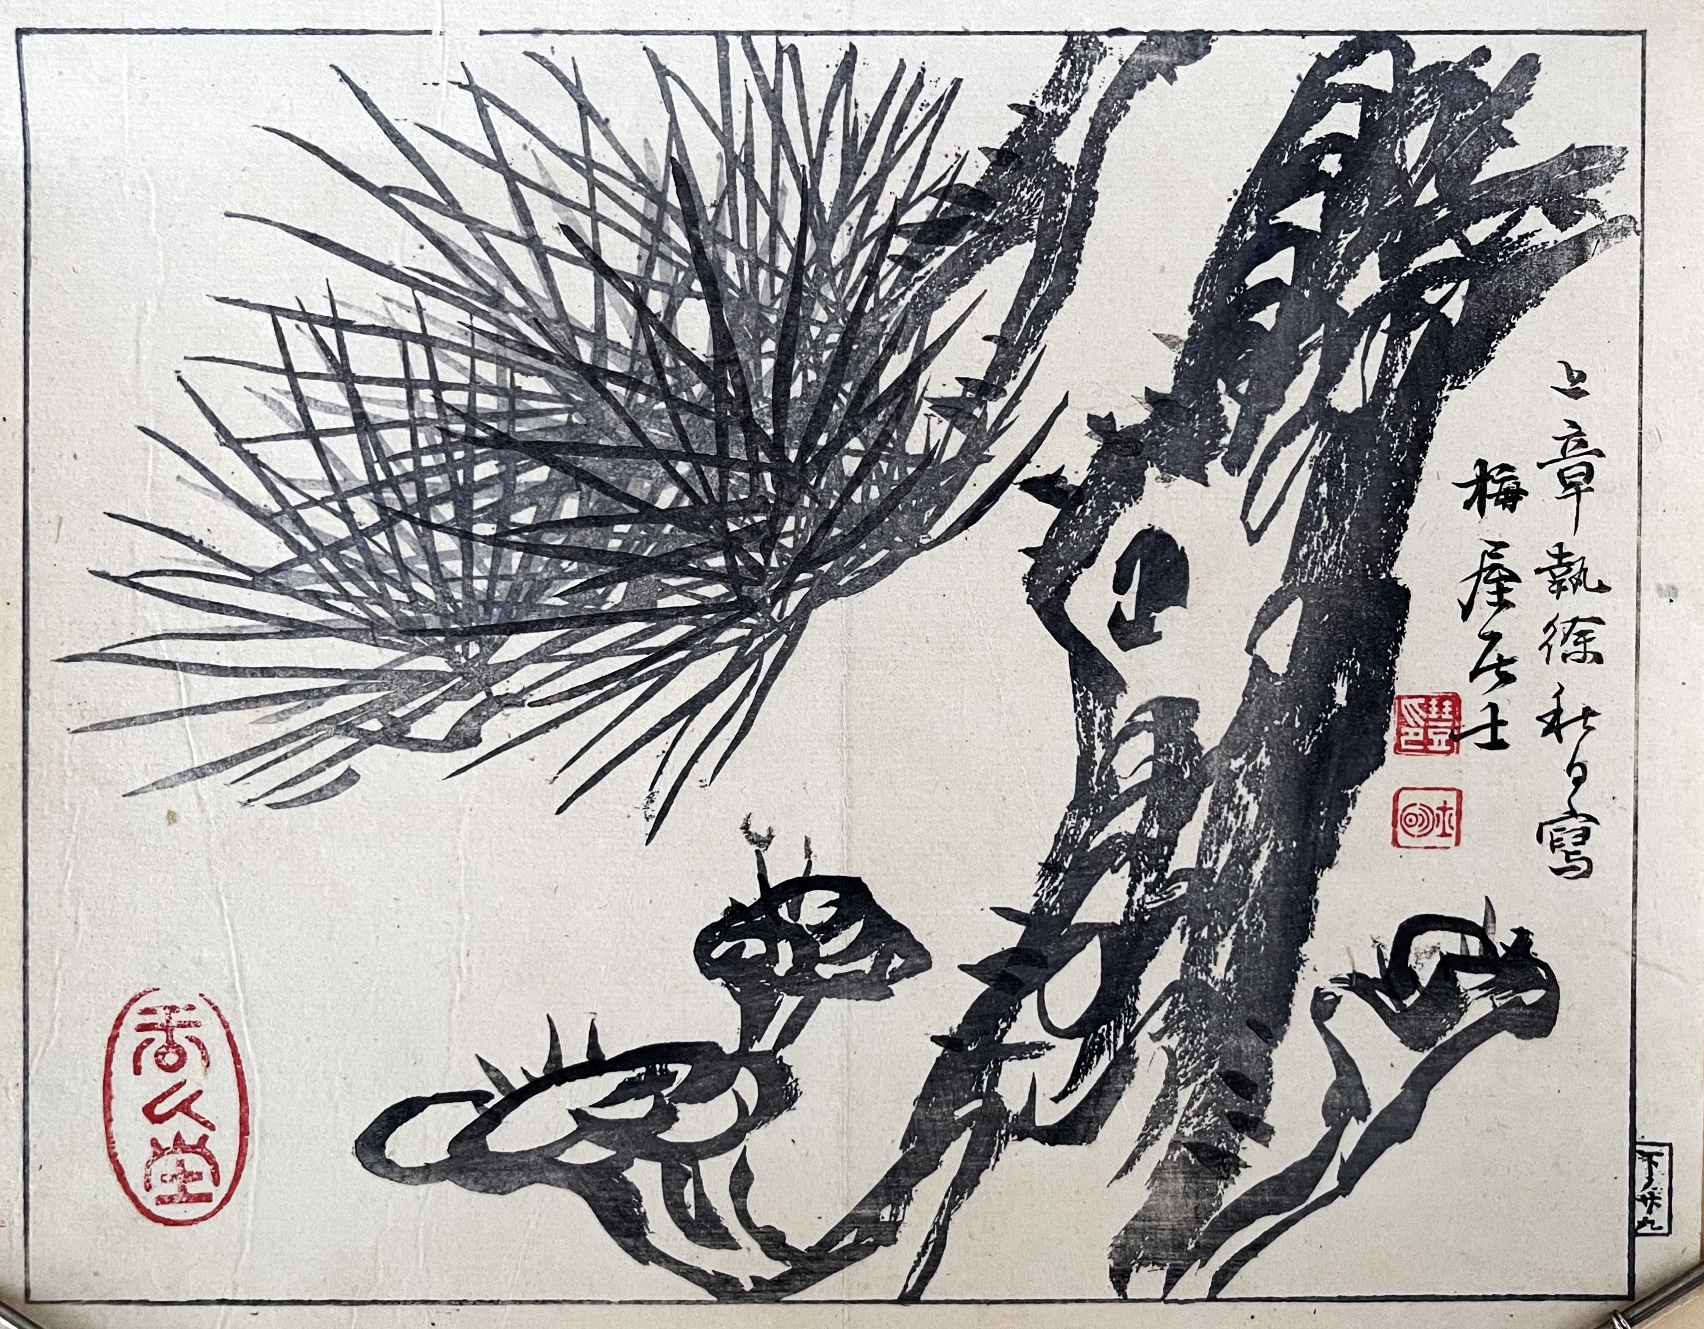 上章執徐秋日寫
梅屋居士
下ノ廿九